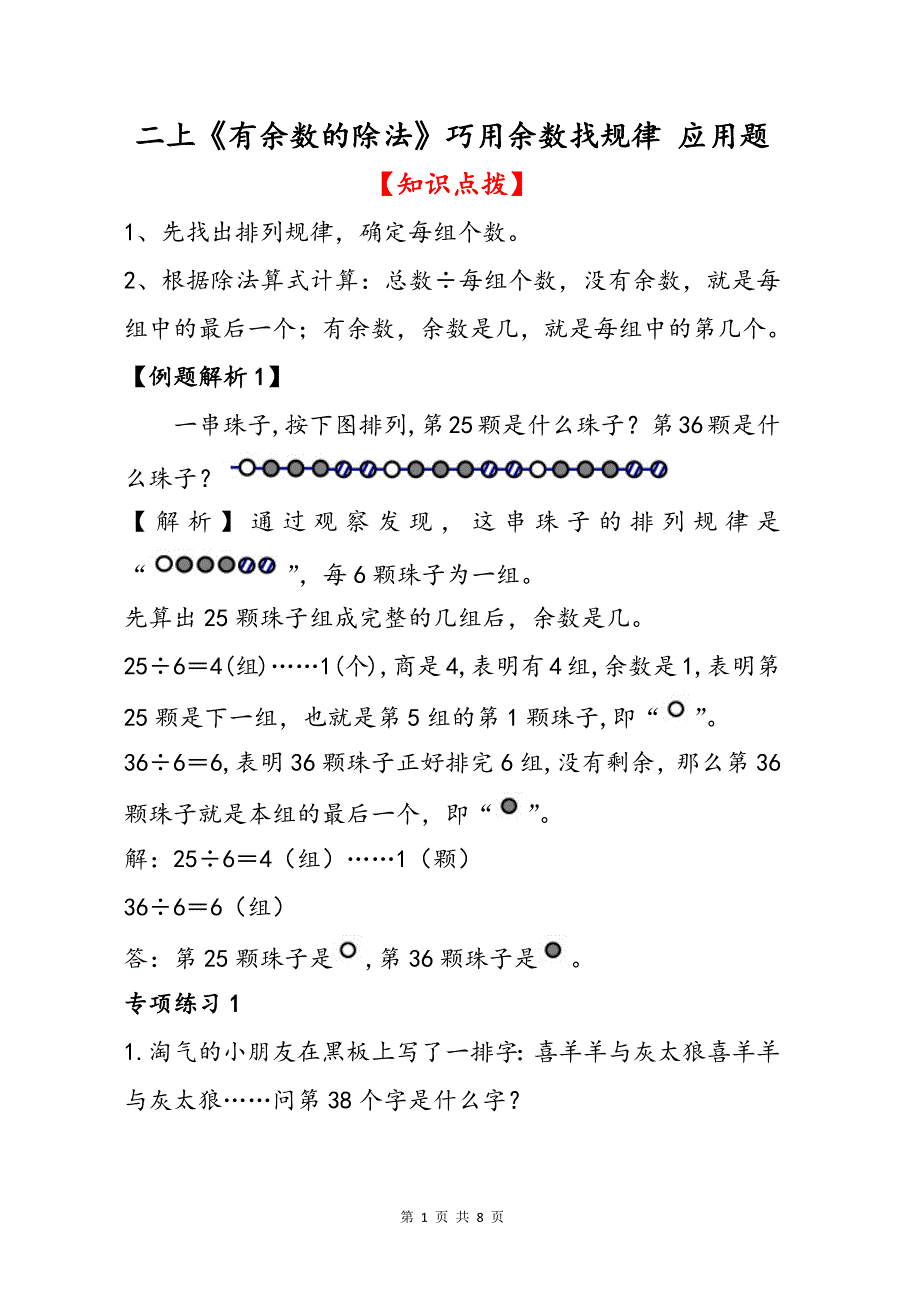 二上《有余数的除法》巧用余数找规律 应用题
【知识点拨】
1、先找出排列规律，确定每组个数。
2、根据除法算式计算：总数÷每组个数，没有余数，就是每
组中的最后一个；有余数，余数是几，就是每组中的第几个。
【例题解析1】
一串珠子,按下图排列,第25颗是什么珠子？第36颗是什
么珠子？
【解析】通过观察发现，这串珠子的排列规律是
“ ”，每6颗珠子为一组。
先算出25颗珠子组成完整的几组后，余数是几。
25÷6＝4(组)……1(个),商是4,表明有4组,余数是1,表明第
25颗是下一组，也就是第5组的第1颗珠子,即“ ”。
36÷6＝6,表明36颗珠子正好排完6组,没有剩余，那么第36
颗珠子就是本组的最后一个，即“ ”。
解：25÷6＝4（组）……1（颗）
36÷6＝6（组）
答：第25颗珠子是 ,第36颗珠子是 。
专项练习1
1.淘气的小朋友在黑板上写了一排字：喜羊羊与灰太狼喜羊羊
与灰太狼……问第38个字是什么字？
第 1 页 共 8 页